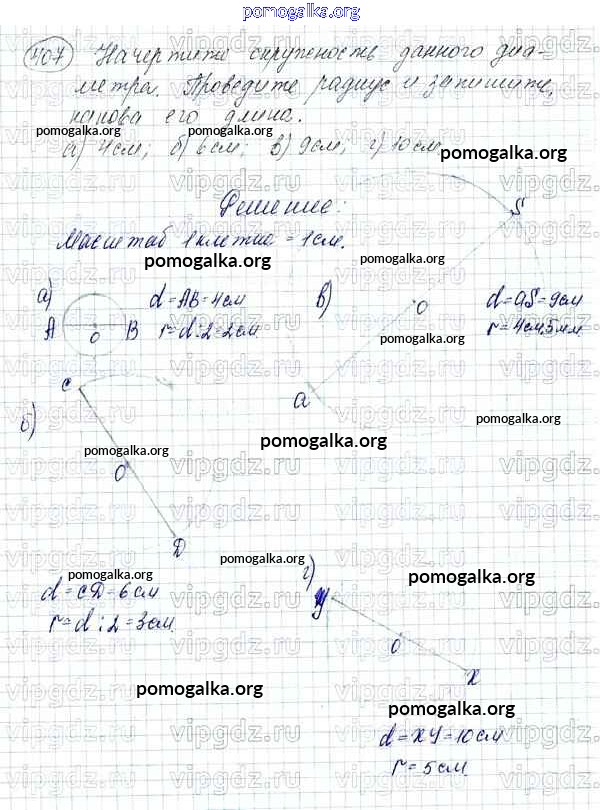 pomogalka.org
407 Начертите окружность данного диа-
метра. Проведите радиус и запишите,
какова его длина.
pomogalka.org pomogalka.org
а) 4см; б) 6см; в) 9см; г) 10см
pomogalka.org
vipgdz.ru vipgdz.ru vipgdz.ru
Решение:
S
Масштаб 1 клетка = 1см.
pomogalka.org
а) d=AB=4см
в) d=QS=9см
A O B r=d:2=2см
O
r=4см5мм
pomogalka.org pomogalka.org
pomogalka.org
C
Q
б)
pomogalka.org
pomogalka.org
pomogalka.org
O
D
pomogalka.org
г)
pomogalka.org
pomogalka.org
d=CD=6см
У
r=d:2=3см.
O
X
pomogalka.org
pomogalka.org
d=XY=10см
r=5см.